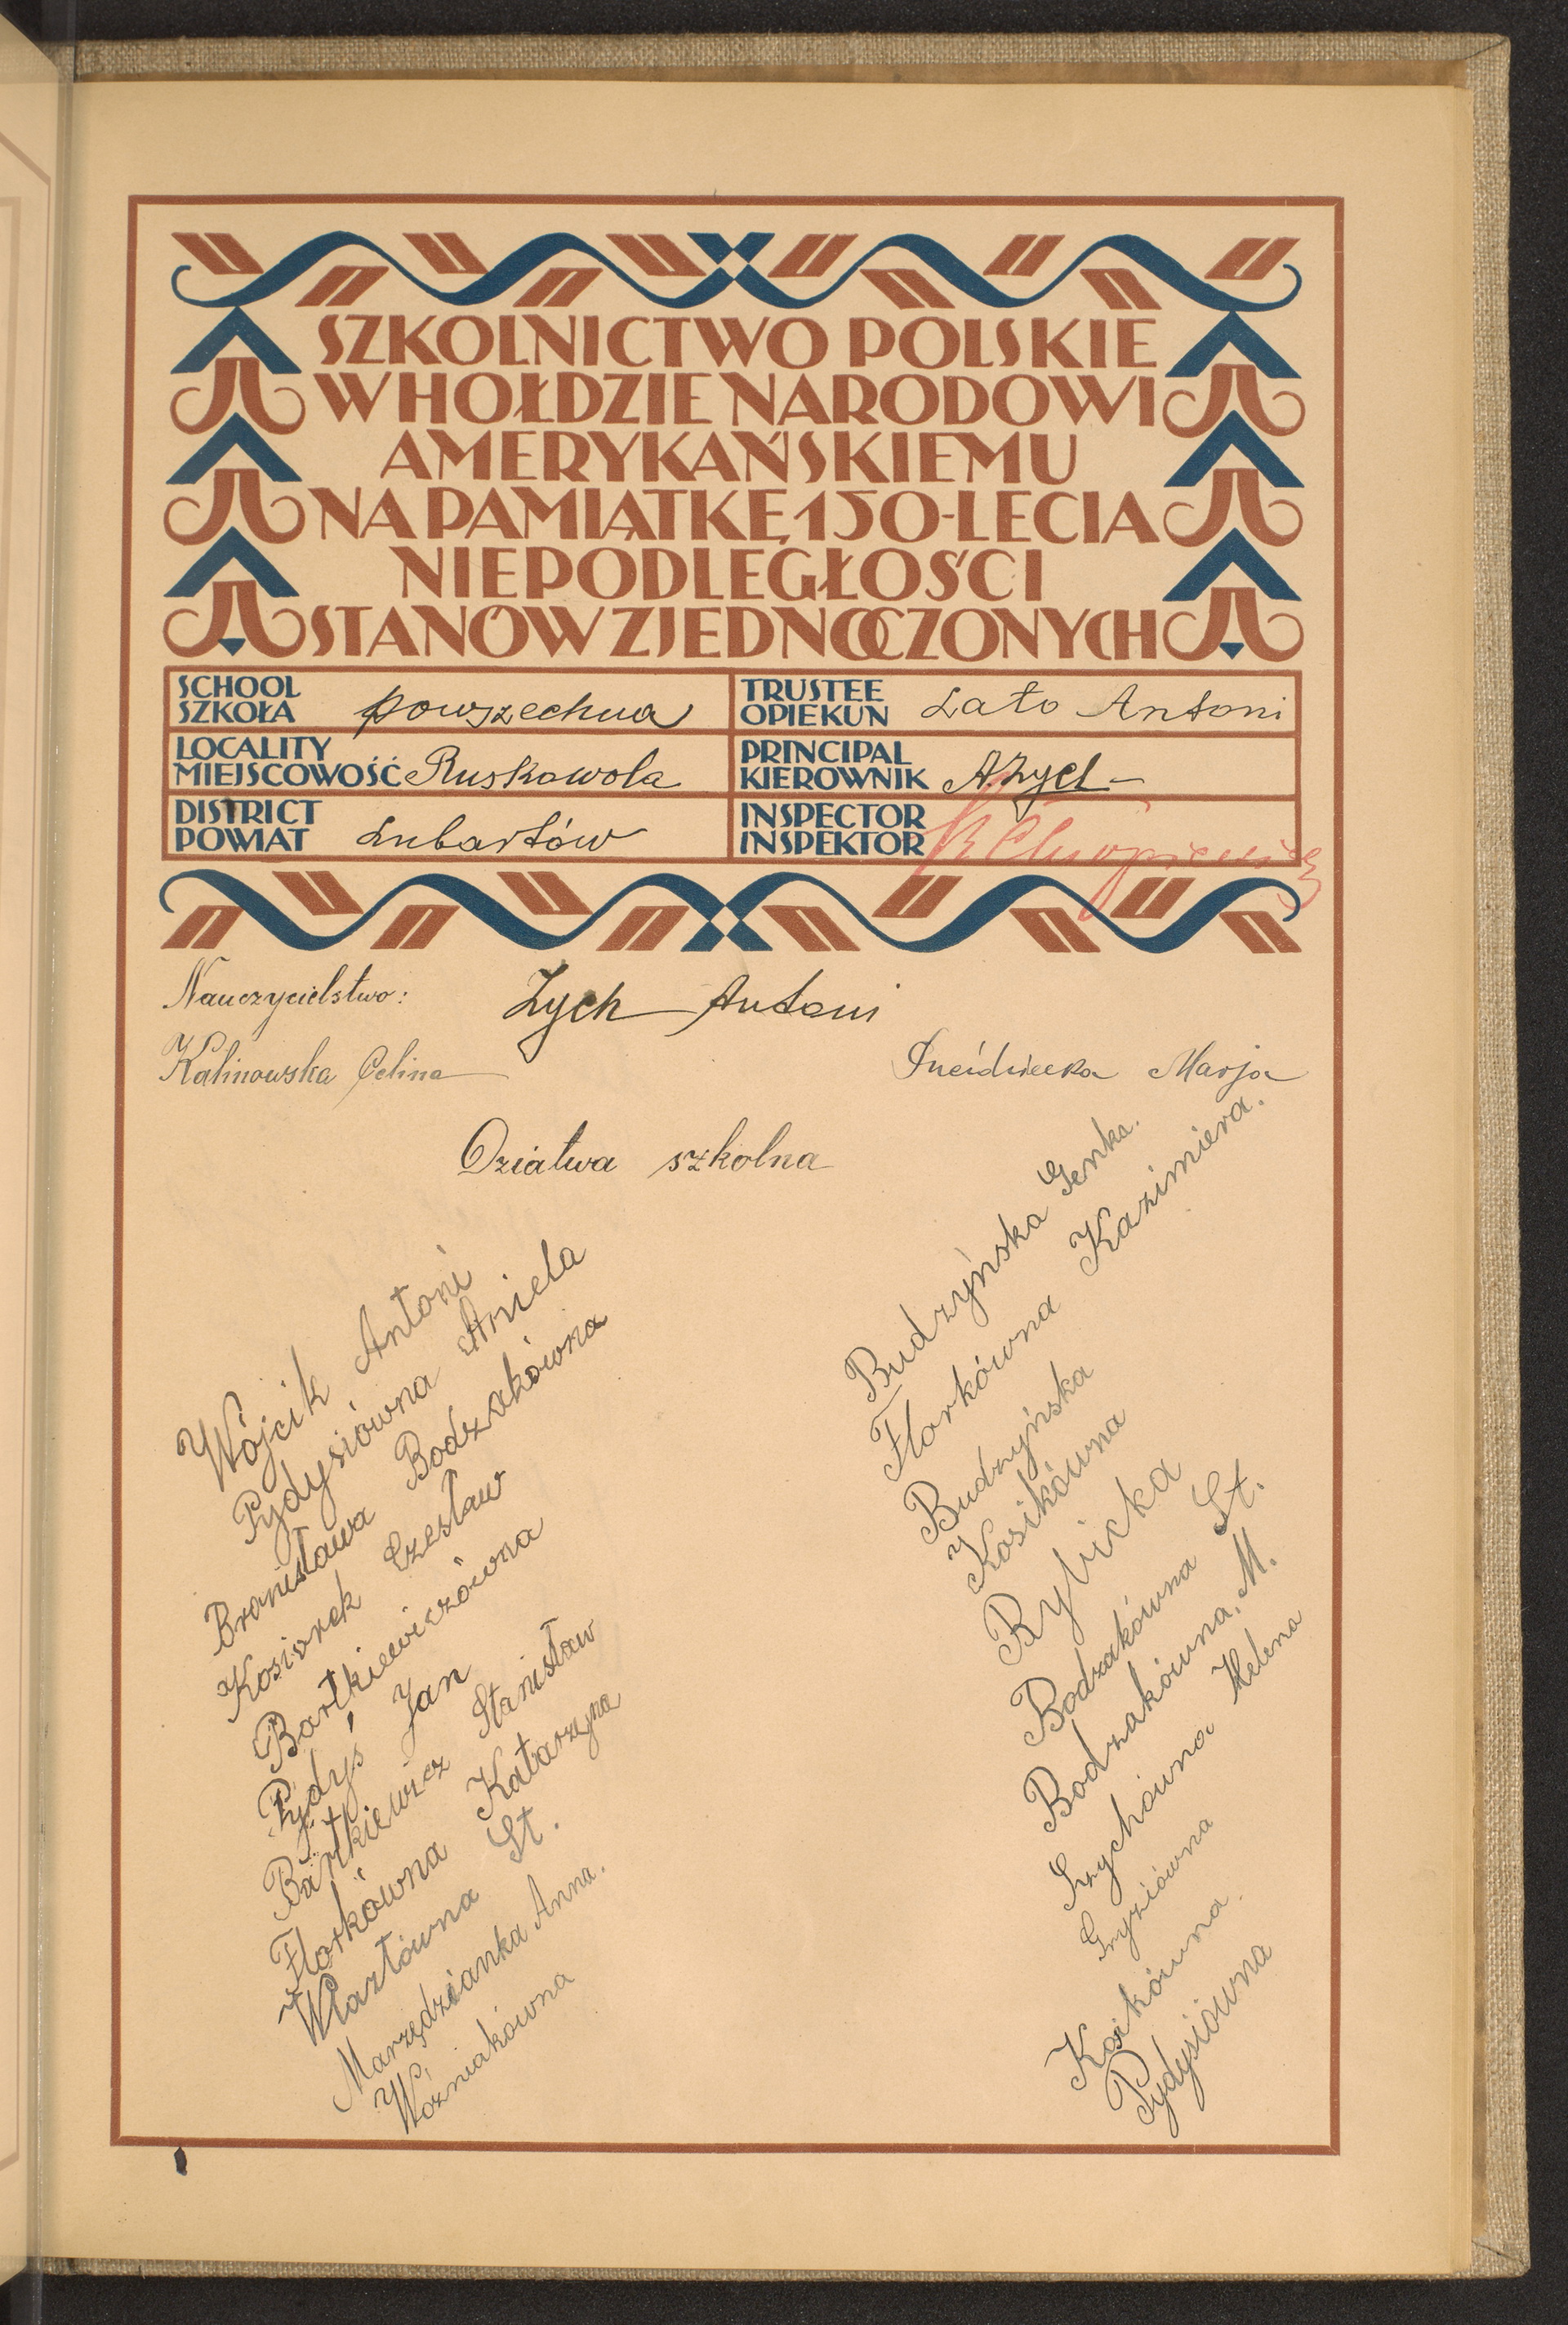 SZKOLNICTWO POLSKIE
W HOŁDZIE NARODOWI
AMERYKAŃSKIEMU
NA PAMIĄTKĘ 150-LECIA
NIEPODLEGŁOŚCI
STANÓW ZJEDNOCZONYCH
SCHOOL
SZKOŁA powszechna
TRUSTEE
OPIEKUN Lato Antoni
LOCALITY
MIEJSCOWOŚĆ Ruskowola
PRINCIPAL
KIEROWNIK AZych
DISTRICT
POWIAT Lubartów
INSPECTOR
INSPEKTOR
Nauczycielstwo: Zych Antoni
Kalinowska Celina
Marja
Dziatwa szkolna
Wójcik Antoni
Pydysiówna Aniela
Bronisława Bodzakówna
Kosiorek Czesław
Bartkiewiczówna
Pydyś Jan
Bartkiewicz Stanisław
Florkówna Katarzyna
Wlaztówna St.
Marzędzianka Anna.
Woźniakówna
Budzyńska Genka.
Florkówna Kazimiera.
Budzyńska
Kosikówna
Rybicka
Bodzakówna St.
Bodzakówna, M.
Zychówna Helena
Gryziówna
Kosikówna.
Pydysiówna